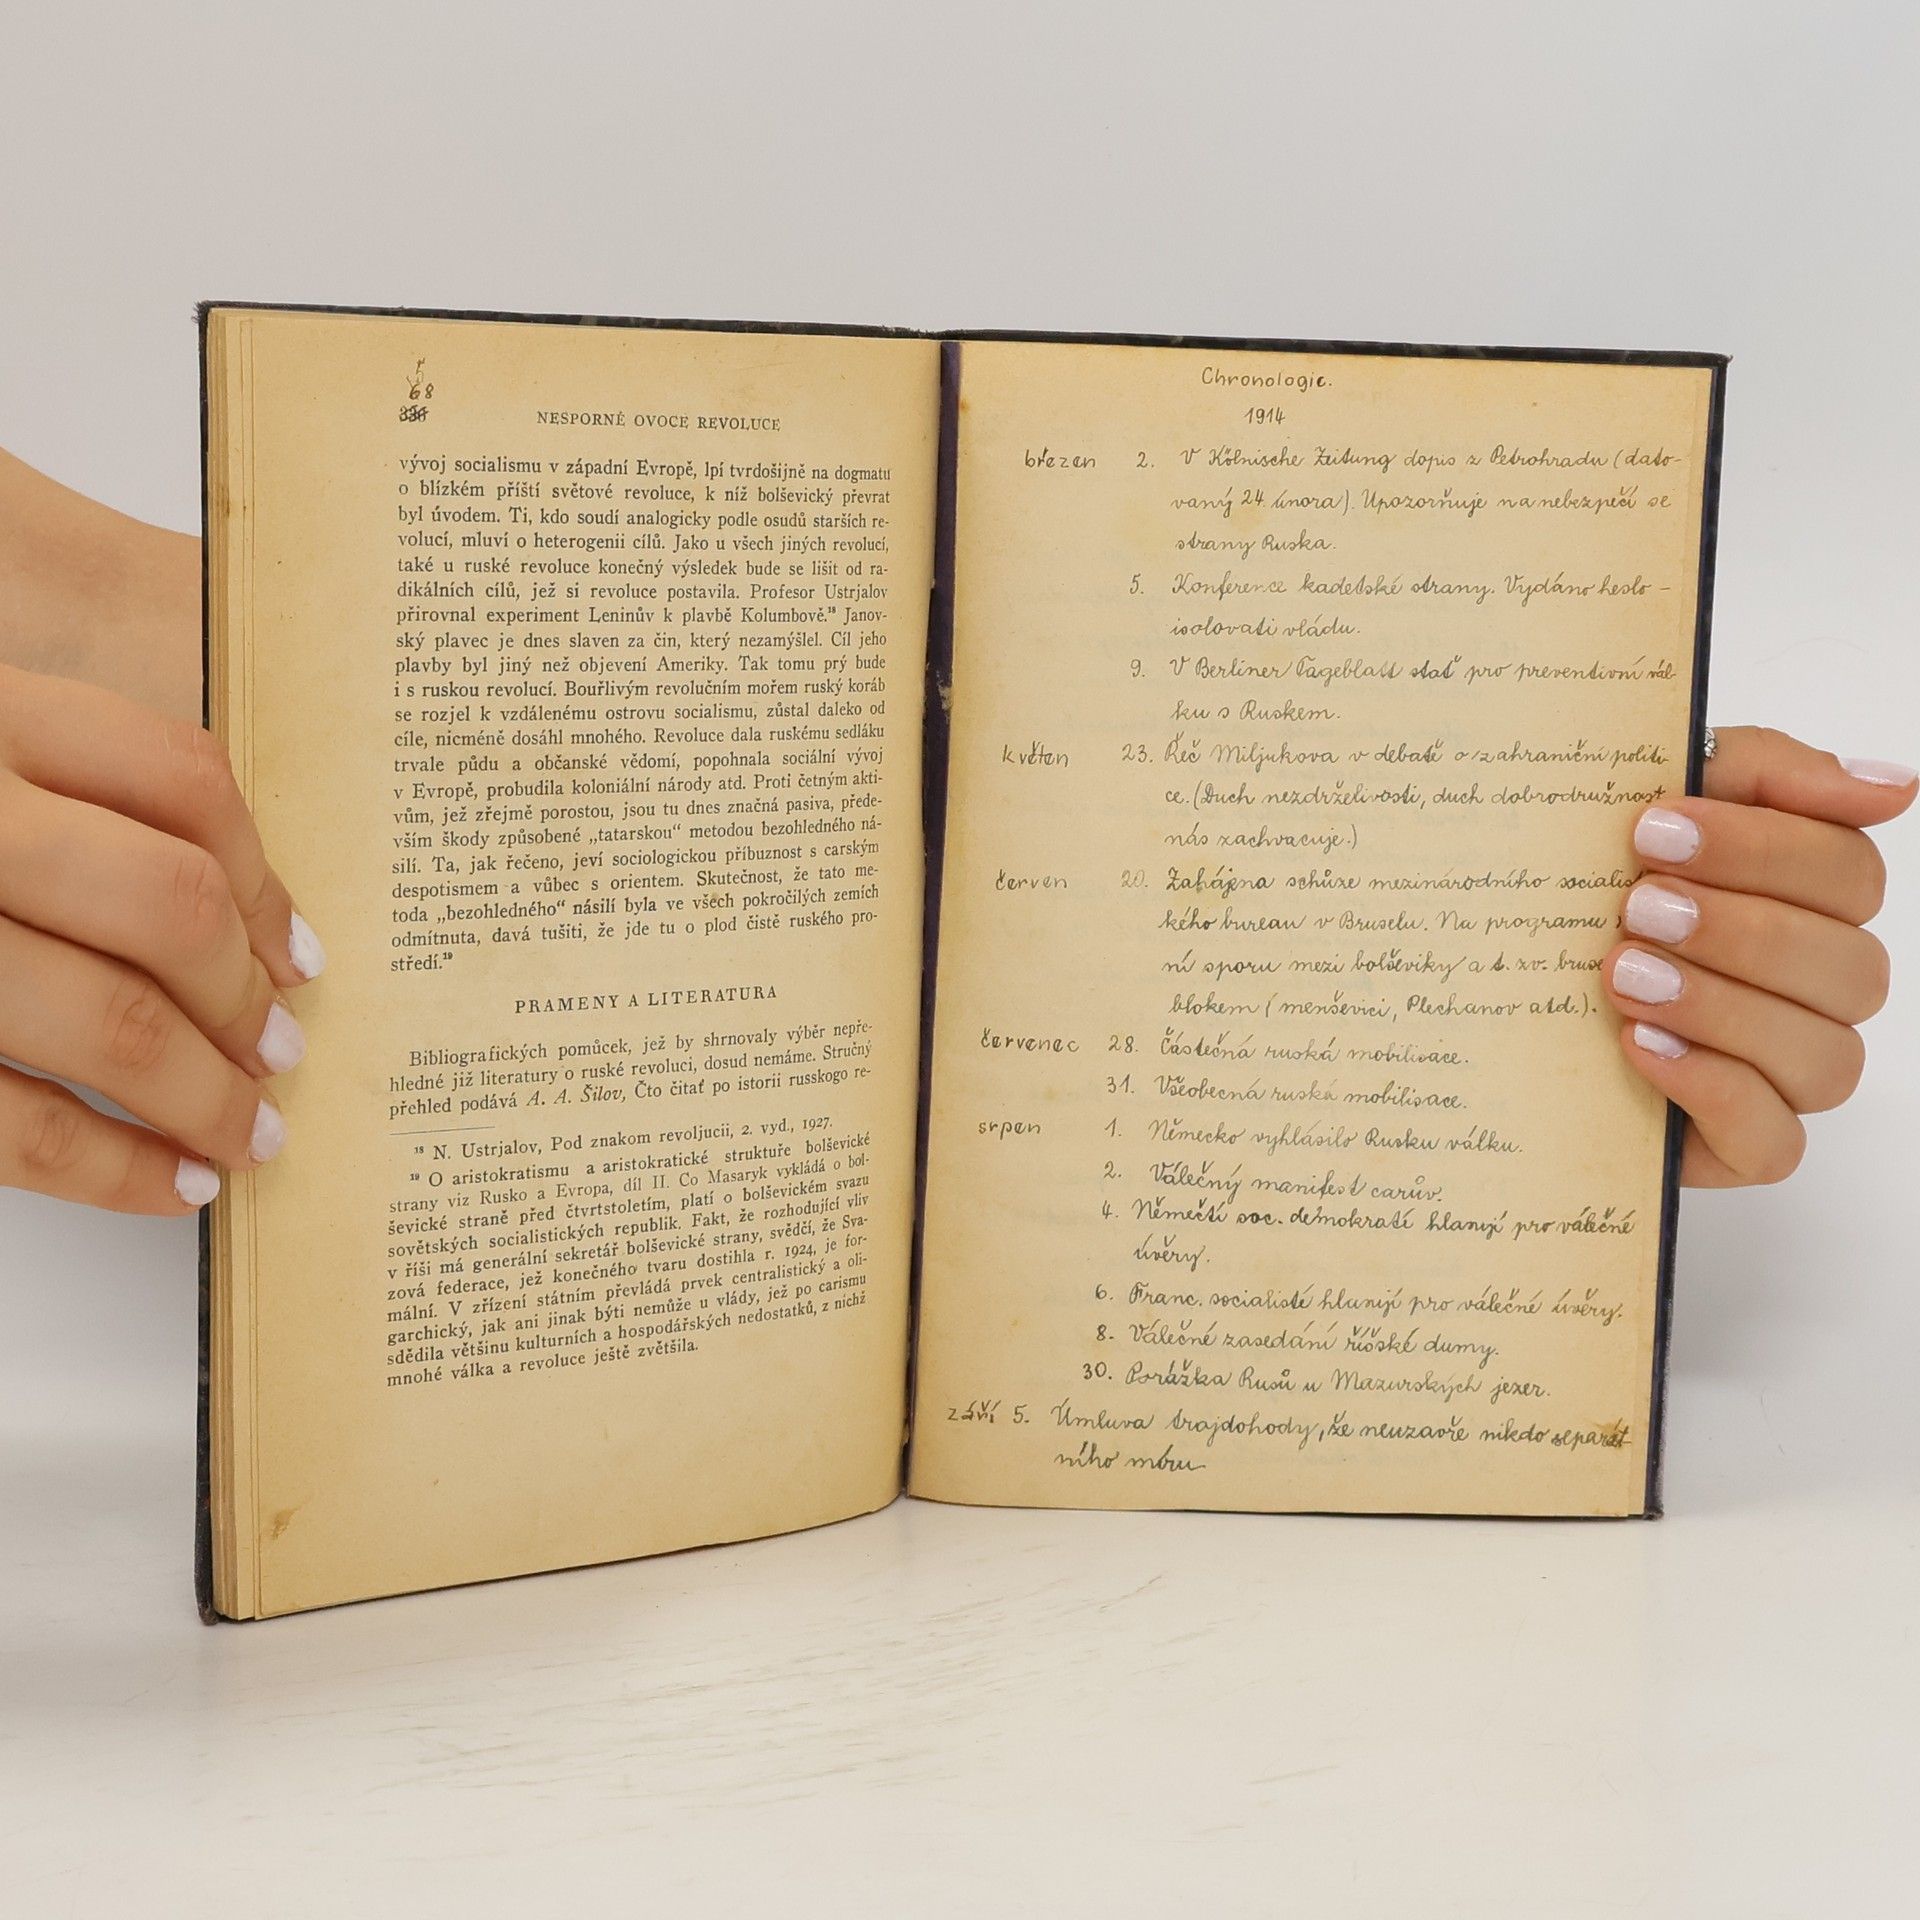 68
336
NESPORNÉ OVOCE REVOLUCE
vývoj socialismu v západní Evropě, lpí tvrdošijně na dogmatu
o blízkém příští světové revoluce, k níž bolševický převrat
byl úvodem. Ti, kdo soudí analogicky podle osudů starších re-
volucí, mluví o heterogenii cílů. Jako u všech jiných revolucí,
také u ruské revoluce konečný výsledek bude se lišit od ra-
dikálních cílů, jež si revoluce postavila. Profesor Ustrjalov
přirovnal experiment Leninův k plavbě Kolumbově.¹⁸ Janov-
ský plavec je dnes slaven za čin, který nezamýšlel. Cíl jeho
plavby byl jiný než objevení Ameriky. Tak tomu prý bude
i s ruskou revolucí. Bouřlivým revolučním mořem ruský koráb
se rozjel k vzdálenému ostrovu socialismu, zůstal daleko od
cíle, nicméně dosáhl mnohého. Revoluce dala ruskému sedláku
trvale půdu a občanské vědomí, popohnala sociální vývoj
v Evropě, probudila koloniální národy atd. Proti četným akti-
vům, jež zřejmě porostou, jsou tu dnes značná pasiva, přede-
vším škody způsobené „tatarskou“ metodou bezohledného ná-
silí. Ta, jak řečeno, jeví sociologickou příbuznost s carským
despotismem a vůbec s orientem. Skutečnost, že tato me-
toda „bezohledného“ násilí byla ve všech pokročilých zemích
odmítnuta, davá tušiti, že jde tu o plod čistě ruského pro-
středí.¹⁹
PRAMENY A LITERATURA
Bibliografických pomůcek, jež by shrnovaly výběr nepře-
hledné již literatury o ruské revoluci, dosud nemáme. Stručný
přehled podává A. A. Šilov, Čto čitať po istorii russkogo re-
¹⁸ N. Ustrjalov, Pod znakom revoljucii, 2. vyd., 1927.
¹⁹ O aristokratismu a aristokratické struktuře bolševické
strany viz Rusko a Evropa, díl II. Co Masaryk vykládá o bol-
ševické straně před čtvrtstoletím, platí o bolševickém svazu
sovětských socialistických republik. Fakt, že rozhodující vliv
v říši má generální sekretář bolševické strany, svědčí, že Sva-
zová federace, jež konečného tvaru dostihla r. 1924, je for-
mální. V zřízení státním převládá prvek centralistický a oli-
garchický, jak ani jinak býti nemůže u vlády, jež po carismu
sdědila většinu kulturních a hospodářských nedostatků, z nichž
mnohé válka a revoluce ještě zvětšila.
Chronologie.
1914
březen 2. V Kölnische Zeitung dopis z Petrohradu (dato-
vaný 24. února). Upozorňuje na nebezpečí se
strany Ruska.
5. Konference kadetské strany. Vydáno heslo –
isolovati vládu.
9. V Berliner Tageblatt stať pro preventivní vál-
ku s Ruskem.
květen 23. Řeč Miljukova v debatě o zahraniční politi-
ce. (Duch nezdrželivosti, duch dobrodružnost
nás zachvacuje.)
červen 20. Zahájena schůze mezinárodního socialis
kého bureau v Bruselu. Na programu
ní sporu mezi bolševiky a t. zv. bruse
blokem (menševici, Plechanov atd.).
červenec 28. Částečná ruská mobilisace.
31. Všeobecná ruská mobilisace.
srpen 1. Německo vyhlásilo Rusku válku.
2. Válečný manifest carův.
4. Němečtí soc. demokratí hlasují pro válečné
úvěry.
6. Franc. socialisté hlasují pro válečné úvěry.
8. Válečné zasedání říšské dumy.
30. Porážka Rusů u Mazurských jezer.
září 5. Úmluva trojdohody, že neuzavře nikdo separát-
ního míru